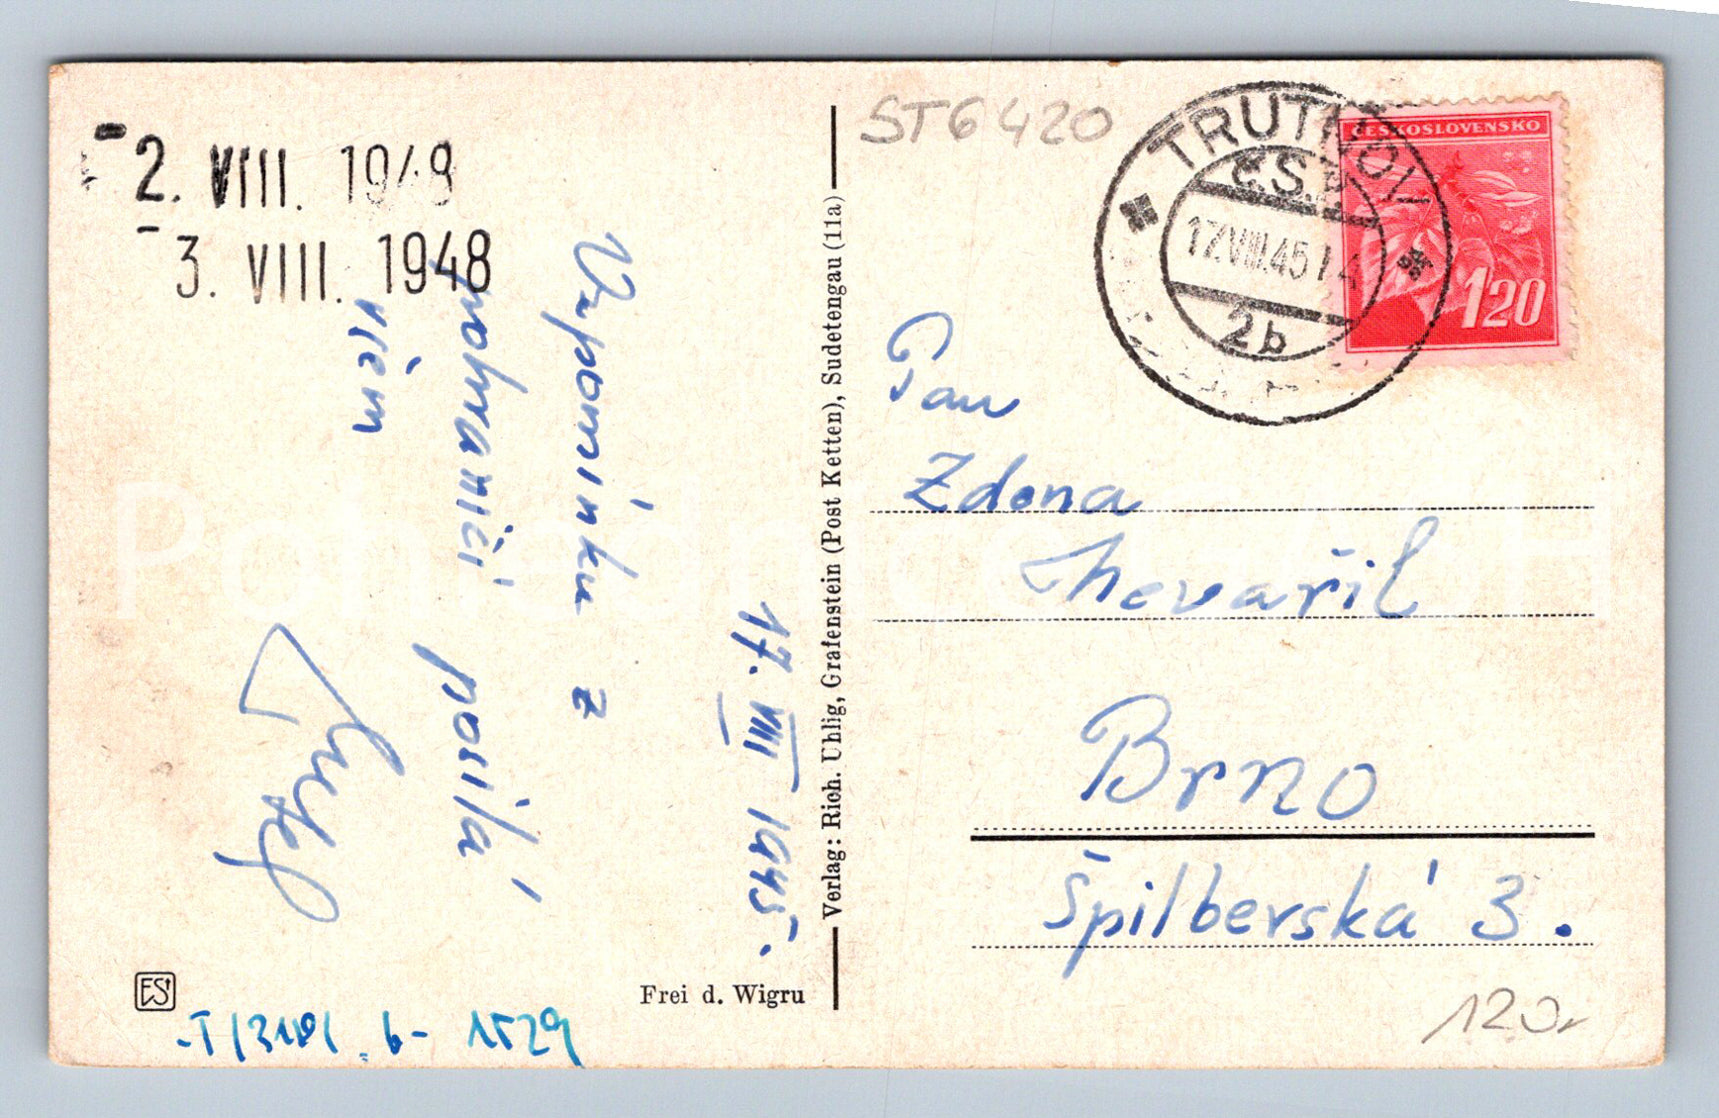 - 2. VIII. 1948
- 3. VIII. 1948
Vzpomínku z
pohraničí posílá
všem
17. VIII 1945.
Verlag: Rich. Uhlig, Grafenstein (Post Ketten), Sudetengau (11a)
Frei d. Wigru
ES
ST6420
TRUTNOV
Č.S.P.
17.VIII.45
2b
ČESKOSLOVENSKO
120
Pan
Zdena
Nevařil
Brno
Špilberská 3.
120,-